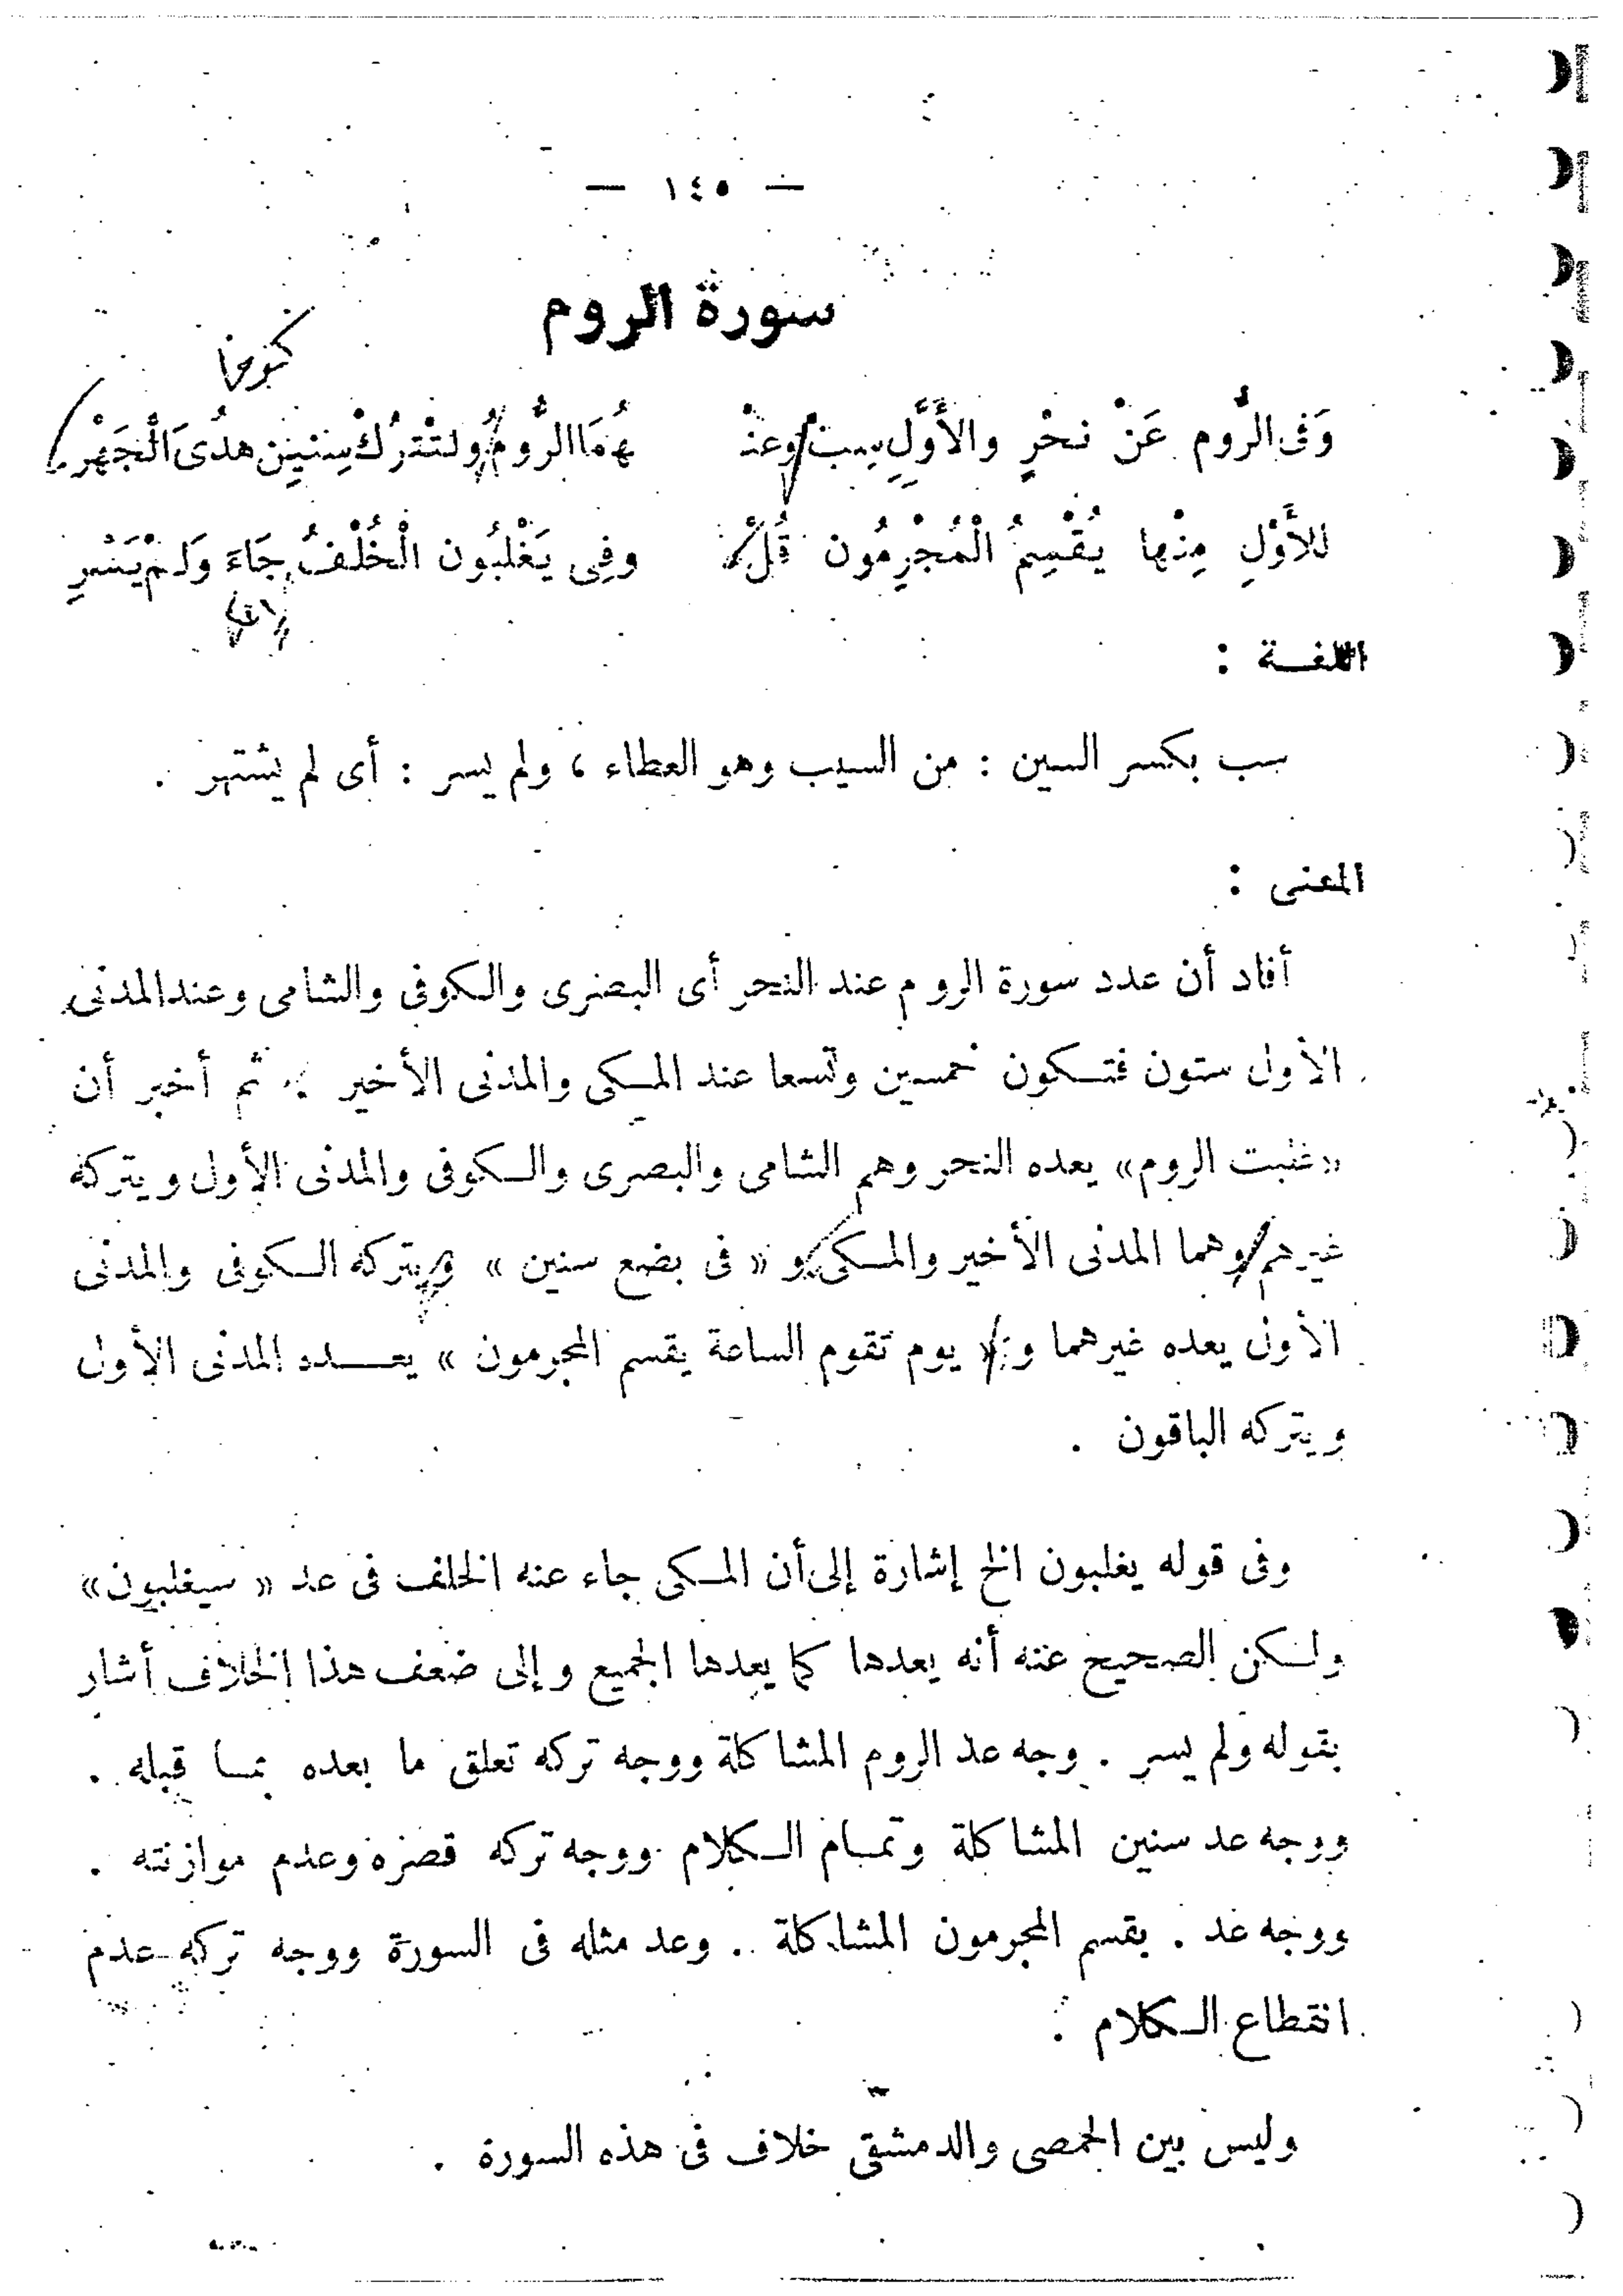 — ١٤٥ —
سورة الروم
وَفى الرُّوم عَنْ نحْرٍ والأَوَّلِ سِبْ وعنْ هُمَا الرُّومُ ولتتْرُكْ سِنين هدُى الْجَهْرِ
للأَوْلِ مِنْها يُقْسِمُ الْمُجْرِمُون قُلْ وفِى يَغْلبُون الْخُلْفُ جَاءَ وَلَمْ يَسْرِ
اللغة :
سب بكسر السين : من السيب وهو العطاء ، ولم يسر : أى لم يشتهر .
المعنى :
أفاد أن عدد سورة الروم عند النحر أى البصرى والكوفى والشامى وعند المدنى
الأول ستون فتكون خمسين وتسعا عند المكى والمدنى الأخير . ثم أخبر أن
«غلبت الروم» يعده النحر وهم الشامى والبصرى والكوفى والمدنى الأول ويتركه
غيرهم وهما المدنى الأخير والمكى و « فى بضع سنين » ويتركه الكوفى والمدنى
الأول يعده غيرهما و « يوم تقوم الساعة يقسم المجرمون » يعده المدنى الأول
ويتركه الباقون .
وفى قوله يغلبون الخ إشارة إلى أن المكى جاء عنه الخلف فى عد « سيغلبون»
ولكن الصحيح عنه أنه يعدها كما يعدها الجميع وإلى ضعف هذا الخلاف أشار
بقوله ولم يسر . وجه عد الروم المشاكلة ووجه تركه تعلق ما بعده بما قبله .
ووجه عد سنين المشاكلة وتمام الكلام ووجه تركه قصره وعدم موازنته .
ووجه عد . يقسم المجرمون المشاكلة . وعد مثله فى السورة ووجه تركه عدم
انقطاع الكلام .
وليس بين الحمصى والدمشقى خلاف فى هذه السورة .